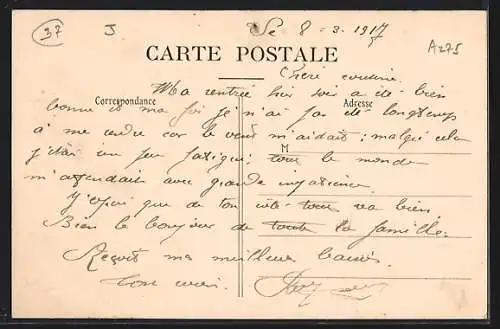 37 J Le 8 - 3. 1917 A275
CARTE POSTALE
Chère cousine.
Ma rentrée hier soir a été bien
Correspondance Adresse
bonne et ma foi je n'ai pas été longtemps
à me rendre car le vent m'aidait; malgré cela
M
j'étais un peu fatigué; tout le monde
m'attendait avec grande impatience
J'espère que de ton côté tout va bien
Bien le bonjour de toute la famille.
Reçois mes meilleurs baisers
Ton